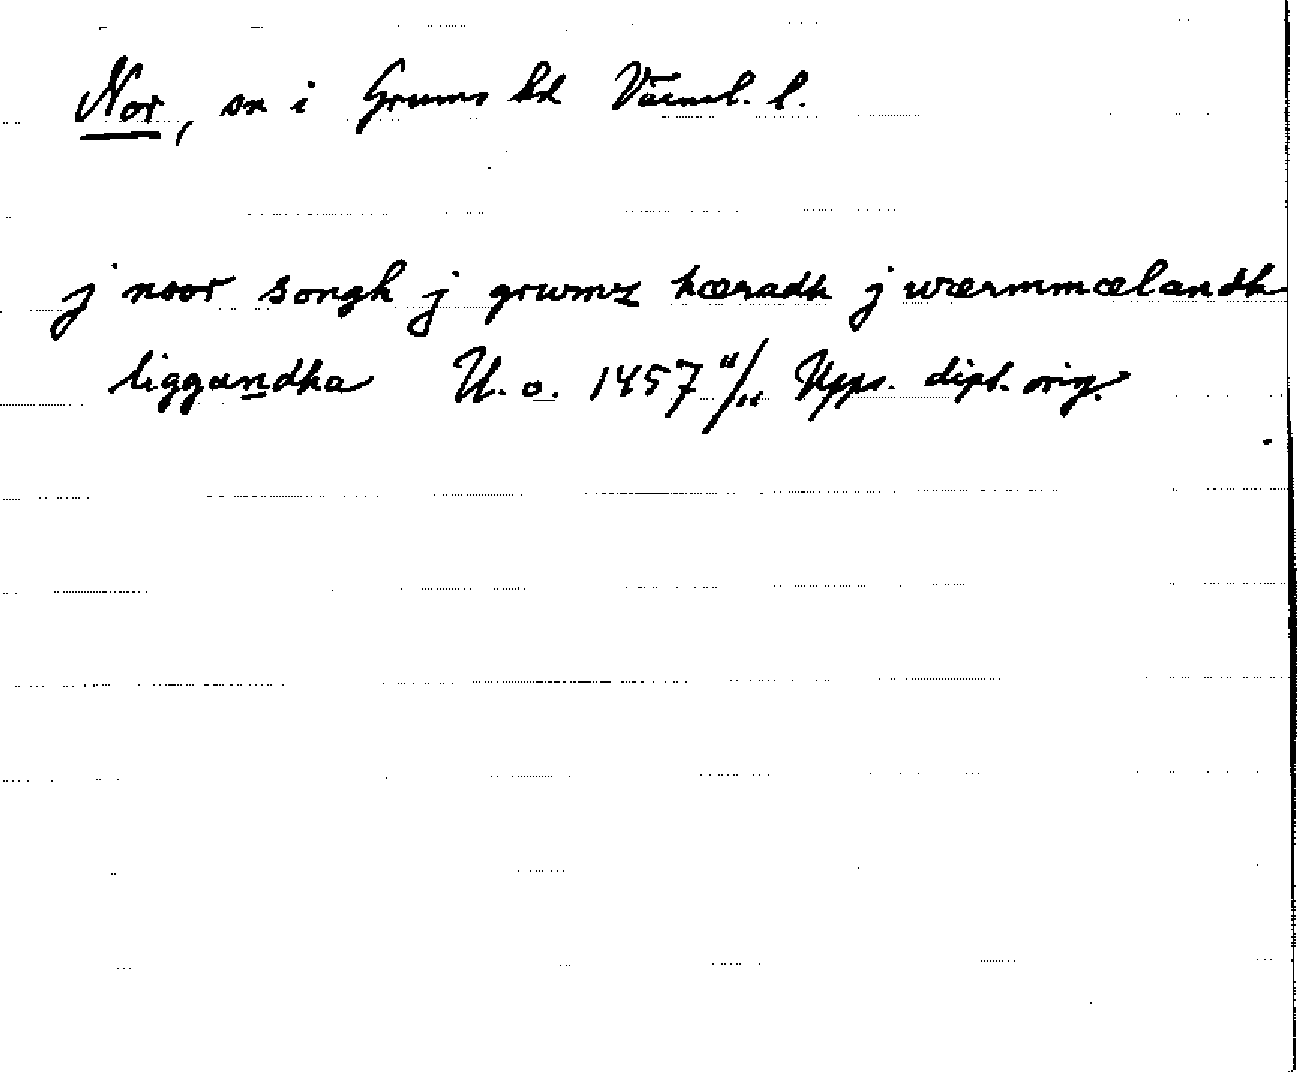 Nor, sn i Grums hd Värml. l.
j noor songh j grwmz hæradh j wærmmælandh
liggandha U. o. 1457 11/11 Upps. dipl. orig.